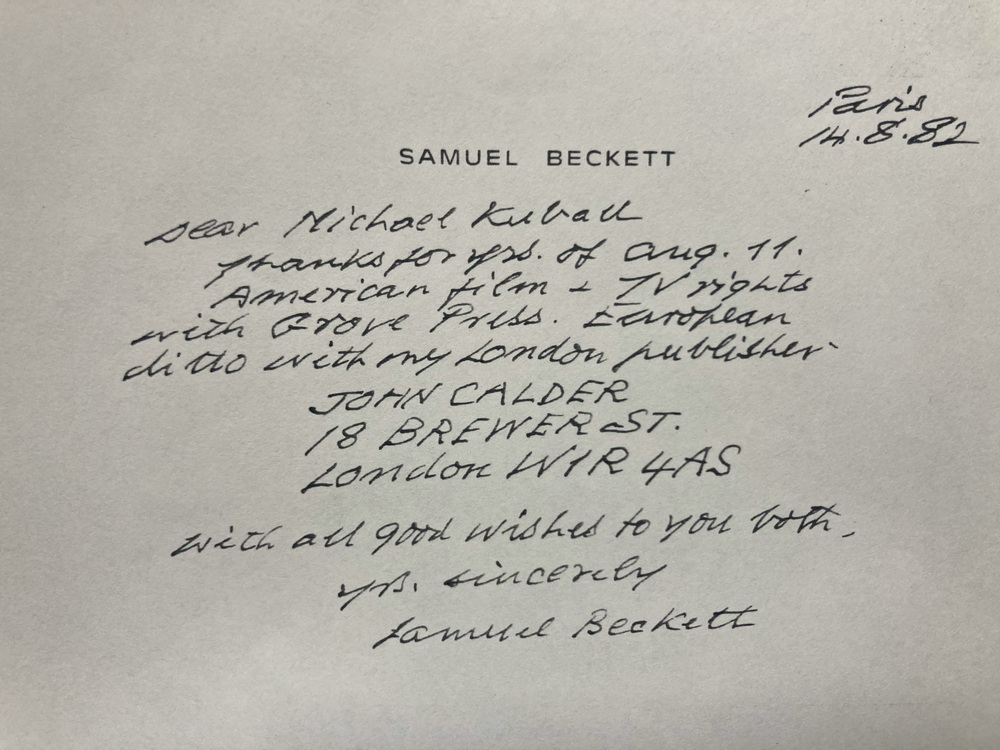 Paris
14.8.82
SAMUEL BECKETT
Dear Michael Kuball
Thanks for yrs. of Aug. 11.
American film + TV rights
with Grove Press. European
ditto with my London publisher
JOHN CALDER
18 BREWER ST.
London W1R 4AS
With all good wishes to you both,
yrs. sincerely
Samuel Beckett